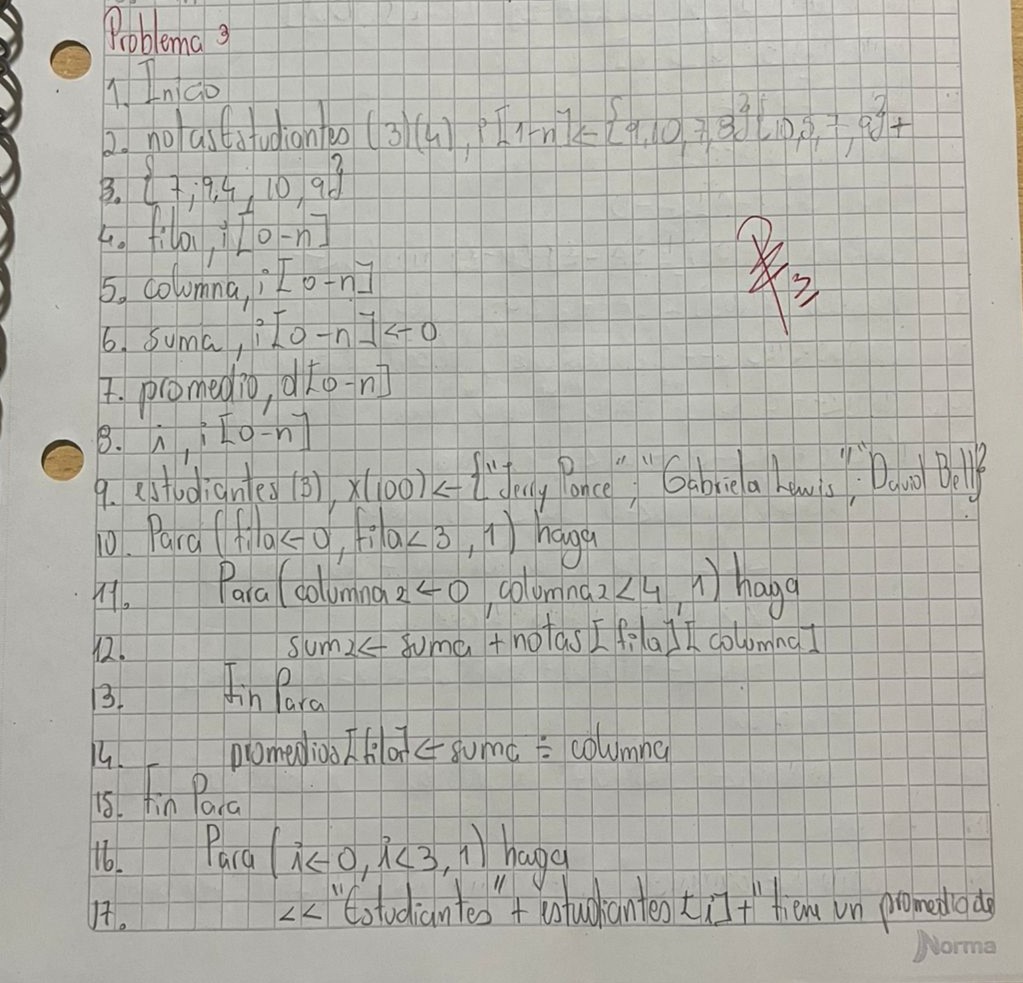 Problema 3
1. Inicio
2. notasEstudiantes (3)(4), i [1-n] ← {9,10,7,8} {10,8,7,9} +
3. {7,9,4,10,9}
4. fila, i [0-n]
5. columna, i [0-n]
6. suma, i [0-n] ← 0
7. promedio, d [0-n]
8. i, i [0-n]
9. estudiantes (3), x(100) ← {"Jerry Ponce", "Gabriela Lewis", "David Bell}
10. Para (fila ← 0, fila < 3, 1) haga
11. Para (columna2 ← 0, columna2 < 4, 1) haga
12. sum2 ← suma + notas [fila] [columna]
13. Fin Para
14. promedios [fila] ← suma ÷ columna
15. Fin Para
16. Para (i ← 0, i < 3, 1) haga
17. << "Estudiantes" + estudiantes [i] + " tiene un promedio de
3
Norma